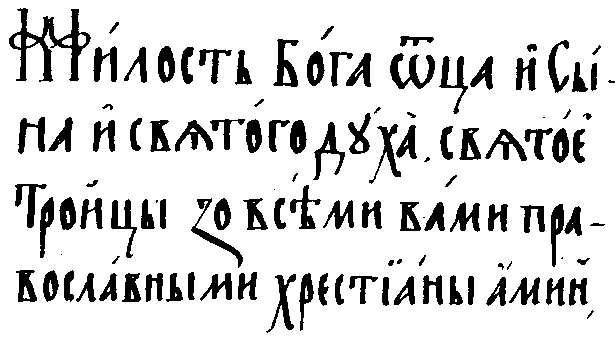 Ми́лость Бо́га ѿца и҆ Сы́-
на и҆ свѧто́го ду́ха̀, свѧто́е҆
Тро́йцы зо всѣ́ми ва́ми пра-
восла́вными́ хрестїа́ны а҆́мин҆,